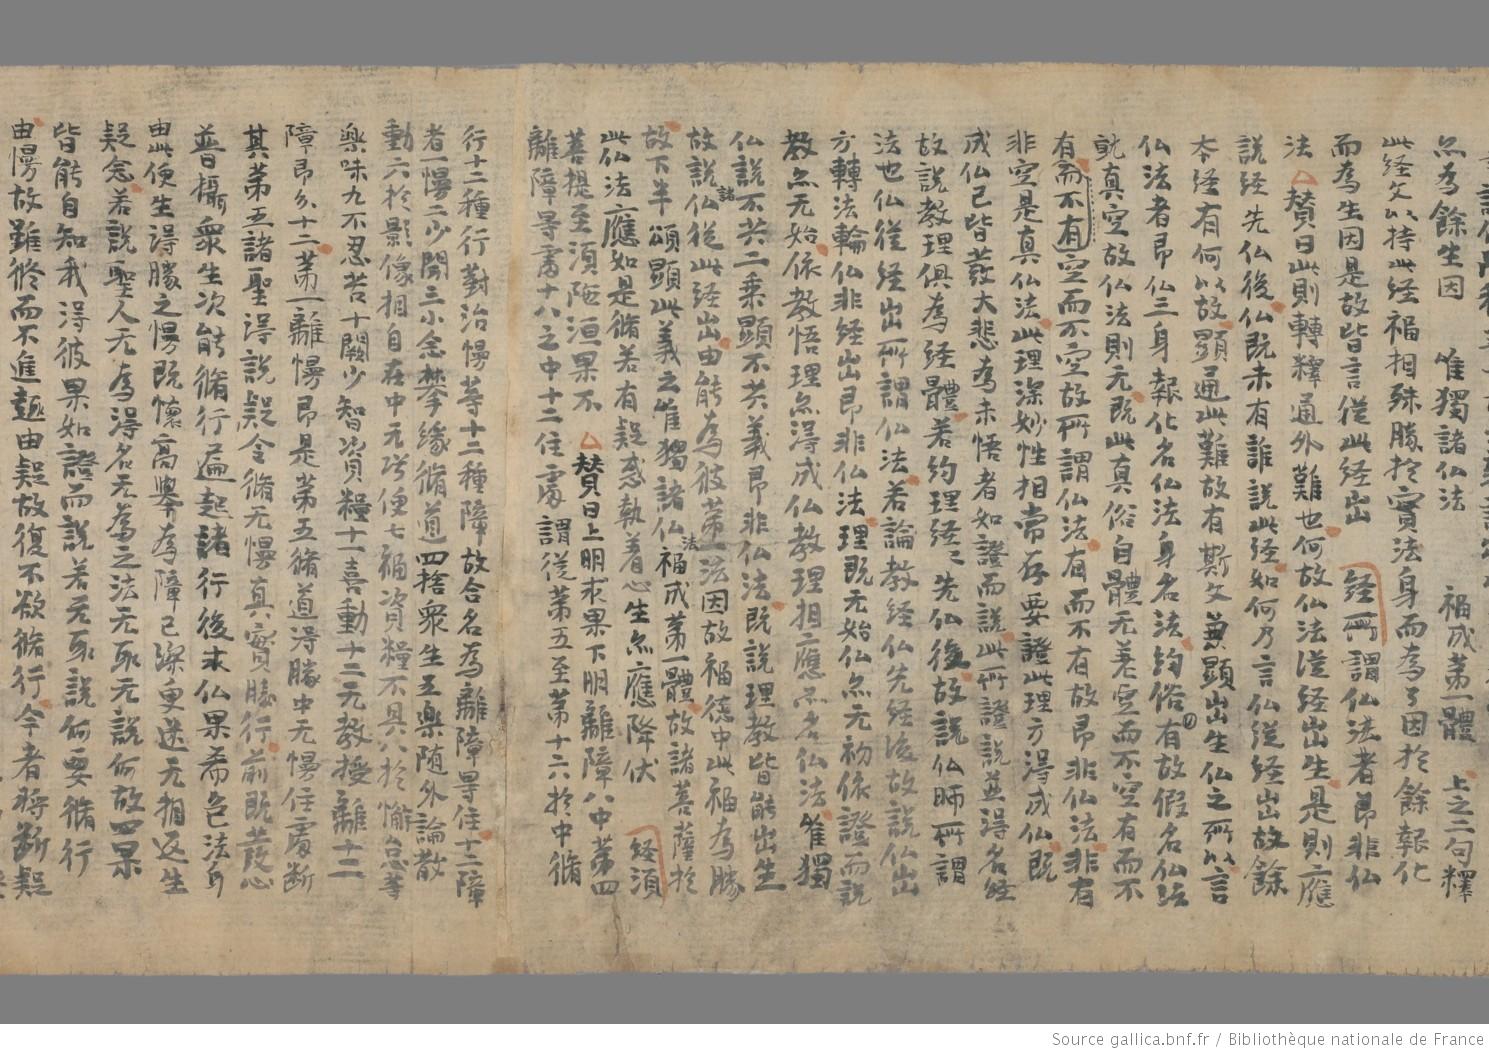 亦為餘生因　唯獨諸仏法　福成第一體　上之二句釋
此経文以持此経福相殊勝於實法身而為了因於餘報化
而為生因是故皆言從此経出　経所謂仏法者即非仏
法　賛曰此則轉釋通外難也何故仏法從経出生是則應
說経先仏後仏既未有誰說此経如何乃言仏從経出故餘
本経有何以故顯通此難故有斯文兼顯出生仏之所以言
仏法者即仏三身報化名仏法身名法約俗有故假名仏法
就真空故仏法則无既此真俗自體无差空而不空有而不
有需不有空而不空故所謂仏法有而不有故即非仏法非有
非空是真仏法此理深妙性相常存要證此理方得成仏既
成仏已皆發大悲為未悟者如證而說此所證說並得名経
故說教理俱為経體若約理経〻先仏後故說仏師所謂
法也仏從経出所謂仏法若論教経仏先経後故說仏出
方轉法輪仏非経出即非仏法理既无始仏亦无初依證而說
教亦无始依教悟理亦得成仏教理相應亦名仏法唯獨
仏說不共二乘顯不共義即非仏法既說理教皆能出生
故說諸仏從此経出由能為彼第一法因故福德中此福為勝
故下半頌顯此義云唯獨諸仏法福成第一體故諸菩薩於
此仏法應如是脩若有疑惑執着心生亦應降伏　経須
菩提至須陁洹果不　賛曰上明求果下明離障八中第四
離障导處十八之中十二住處　謂從第五至第十六於中脩
行十二種行對治慢等十二種障故合名為離障导住十二障
者一慢二少聞三小念攀緣脩道四捨衆生五樂随外論散
動六於影像相自在中无巧便七福資糧不具八於懈怠等
樂味九不忍苦十闕少智資糧十一喜動十二无教授離十二
障即分十二第一離慢即是第五脩道得勝中无慢住處断
其第五諸聖得說疑令脩无慢真實勝行前既發心
普攝衆生次能脩行遍起諸行後求仏果希色法身
由此便生得勝之慢既懷高舉為障已深更迷无相返生
疑念若說聖人无為得名无為之法无取无說何故四果
皆能自知我得彼果如證而說若无取說何要脩行
由慢故雖脩而不進趣由疑故復不欲脩行今者將断疑